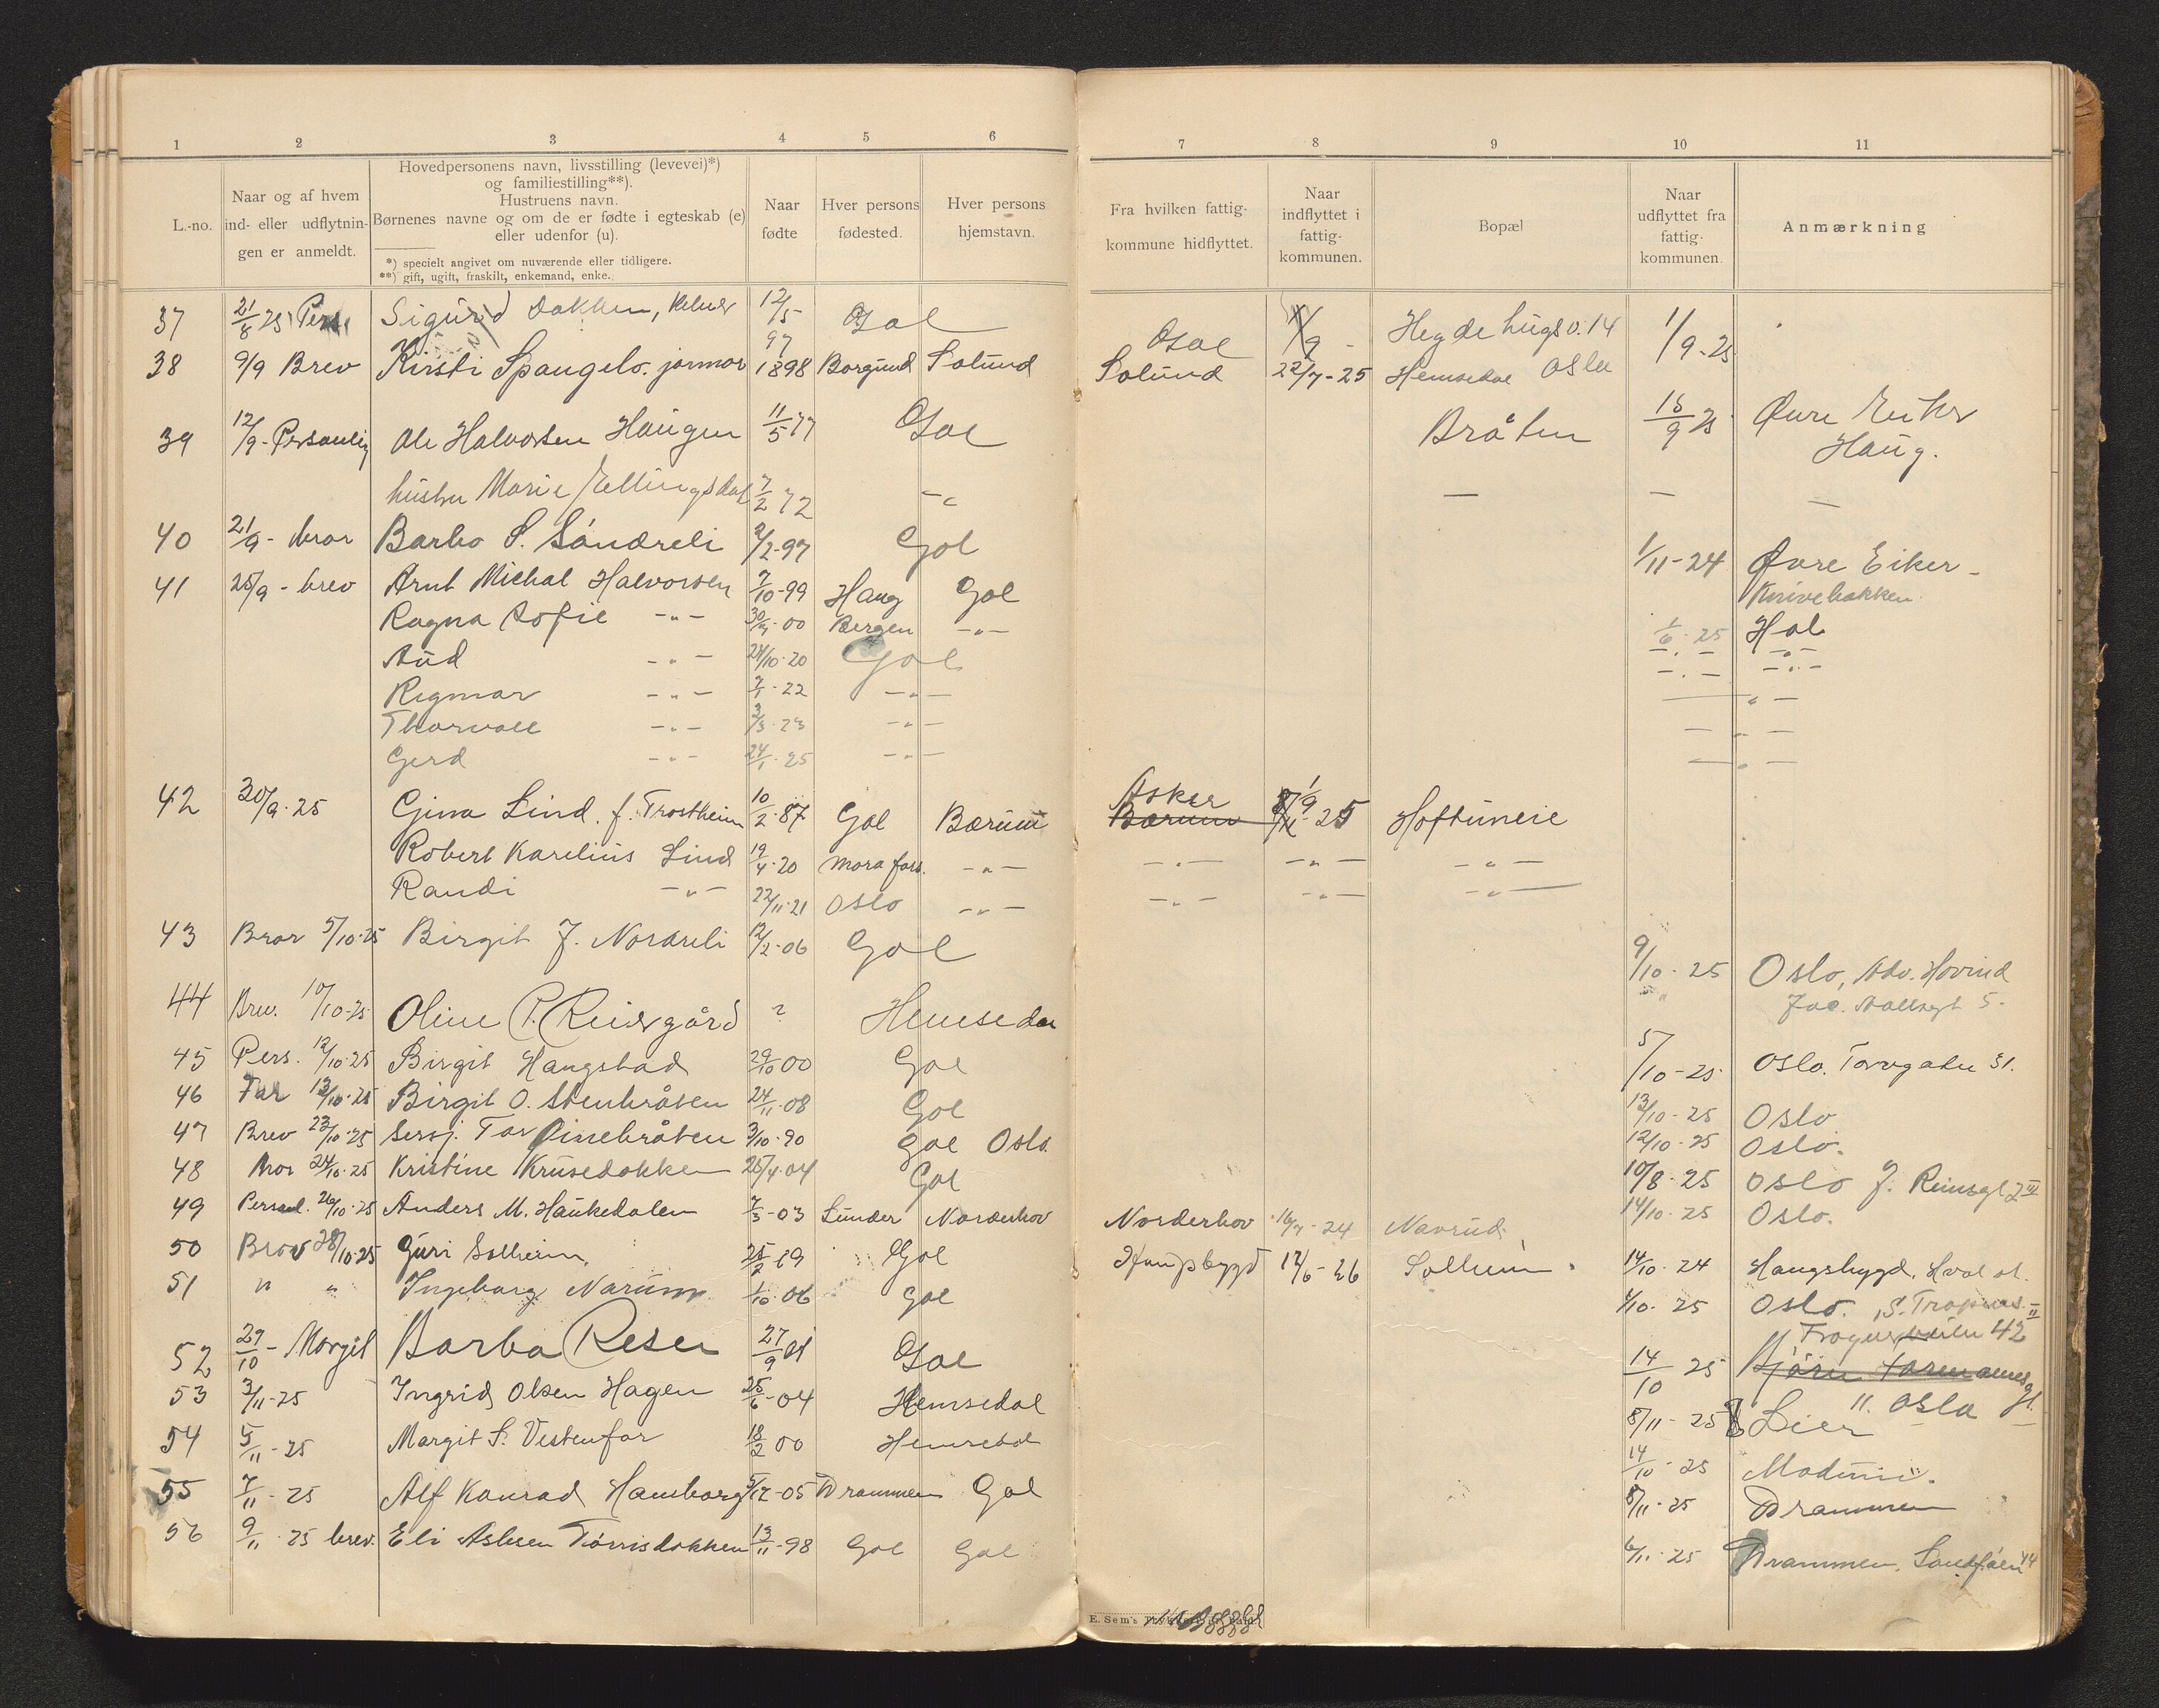 1 2 3 4 5 6 7 8 9 10 11
L.-no.
Naar og af hvem
ind- eller udflytnin-
gen er anmeldt.
Hovedpersonens navn, livsstilling (levevei)*)
og familiestilling**).
Hustruens navn.
Børnenes navne og om de er fødte i egteskab (e)
eller udenfor (u).
*) specielt angivet om nuværende eller tidligere.
**) gift, ugift, fraskilt, enkemand, enke.
Naar
fødte
Hver persons
fødested.
Hver persons
hjemstavn.
Fra hvilken fattig-
kommune hidflyttet.
Naar
indflyttet i
fattig-
kommunen.
Bopæl
Naar
udflyttet fra
fattig-
kommunen.
Anmærkning
37 21/8 25 Pers. Sigurd Dokken, 12/5-97 Gol Gol 1/9 - Hegdehugsv. 14 Oslo 1/9-25
38 9/9 Brev Kirsti Spangelo. jormor 1898 Borgund Solund Solund 22/7-25 Hemsedal
39 12/9-Personlig Ole Halvorsen Haugen 11/5 77 Gol Bråten 15/9 25 Øvre Eiker
Haug.
hustru Marie Ellingsdat 7/2 72 -"- — — —
40 21/9 - bror Barbo S. Søndreli 2/2-97 Gol 1/11-24 Øvre Eiker -
Knivebakken.
41 25/9 - brev Arnt Michal Halvorsen 7/10-99 Haug Gol 1/6-25 Hol
Ragna Sofie -"- 30/7-00 Bergen -"- -"- -"-
Aud -"- 24/10-20 Gol -"- -"-
Rigmor -"- 7/1-22 -"- -"-
Thorvall -"- 3/3-23 -"- -"-
Gerd -"- 24/1-25 -"- -"-
42 30/9-25 Gina Lind. f. Trostheim 10/2-87 Gol Bærum Asker Bærum 1/9 25 Hoftuneie
Robert Karelius Lind 19/4-20 Mora fors. -"- -"- -"- -"-
Randi -"- 22/11-21 Oslo -"- -"- -"- -"-
43 Bror 5/10-25 Birgit J. Nordreli 12/2-06 Gol 9/10-25 Oslo, Adv. Hovind
Jac. Aallsgt 5.
44 Brev. 10/10-25 Oline P. Reiersgård ? Hemsedal 5/10-25 Oslo. Torvgaten 31.
45 Pers. 12/10-25 Birgit Haugstad 29/10 00 Gol 13/10-25 Oslo
46 Far 13/10-25 Birgit O. Stenbråten 24/11-08 Gol 12/10-25 Oslo.
47 Brev 23/10-25 Sersj. Tor Pinebråten 3/10-90 Gol Oslo. 10/8-25 Oslo J. Reinsgt 2 III
48 Mor 24/10-25 Kristine Krusedokken 25/4-04 Gol 14/10-25 Oslo.
49 Personl. 26/10-25 Anders M. Haukedalen 7/3-03 Lunder Norderhov Norderhov 16/7-24 Navrud 14/10-24 Haugsbygd. Hval st.
50 Brev 28/10-25 Guri Solheim, 25/7-89 Gol 12/6-26 Solheim
51 " " Ingeborg Narum 1/10-06 Gol 4/10-25 Oslo.
52 29/10 - Margit Barbo Resen 27/9 01 Gol 14/10 25 Frognerveien 42
11. Oslo
53 3/11-25 Ingrid Olsen Hagen 25/6-04 Hemsedal 8/11-25 Lier
54 5/11-25 Margit S. Vestenfor 18/2 00 Hemsedal 14/10-25 Modum.
55 7/11-25 Alf Konrad Hamborg 5/12-05 Drammen Gol 8/11-25 Drammen
56 9/11-25 brev. Eli Aslesen Tørrisdokken 13/11-98 Gol Gol 6/11-25 Drammen.
E. Sem's